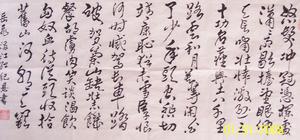 怒髮衝冠憑欄處
瀟瀟雨歇抬望眼仰
天長嘯壯懷激烈三
十功名塵與土八千里
路雲和月莫等閒白
了少年頭空悲切
靖康恥猶未雪臣子恨
何時滅駕長車踏
破賀蘭山缺壯志飢
餐胡虜肉笑談渴飲
匈奴血待從頭收拾
舊山河朝天闕
岳飛滿江紅